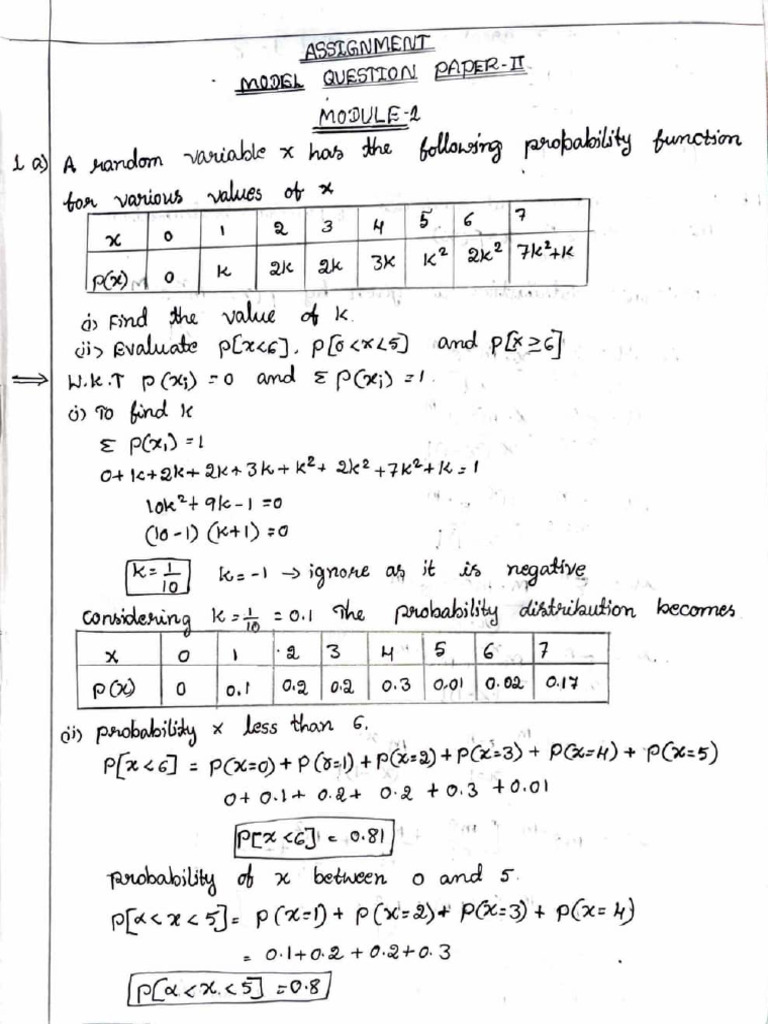 ASSIGNMENT
MODEL QUESTION PAPER-II
MODULE-2
1 a) A random variable x has the following probability function
for various values of x
x 0 1 2 3 4 5 6 7
P(x) 0 k 2k 2k 3k k² 2k² 7k²+k
i) Find the value of k.
ii) Evaluate P[x<6], P[0<x<5] and P[x≥6]
⟹ W.K.T P(xi) =0 and Σ P(xi) =1.
i) To find k
Σ P(xi) =1
0+k+2k+2k+3k+k²+2k²+7k²+k=1
10k²+9k-1=0
(10-1) (k+1)=0
k=1/10 k=-1 → ignore as it is negative
Considering k=1/10 = 0.1 The probability distribution becomes
x 0 1 2 3 4 5 6 7
P(x) 0 0.1 0.2 0.2 0.3 0.01 0.02 0.17
ii) probability x less than 6.
P[x<6] = P(x=0)+P(x=1)+P(x=2)+P(x=3)+P(x=4)+P(x=5)
0+0.1+0.2+0.2+0.3+0.01
P[x<6] = 0.81
probability of x between 0 and 5.
P[α<x<5]= P(x=1)+P(x=2)+P(x=3)+P(x=4)
= 0.1+0.2+0.2+0.3
P[α<x<5] =0.8